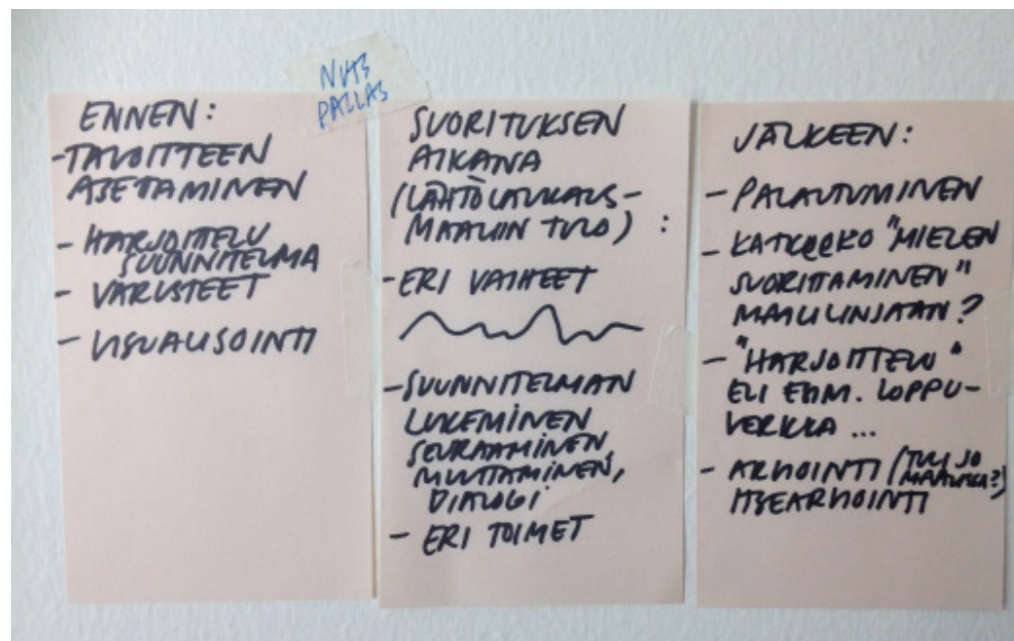 PALLAS
ENNEN:
-TAVOITTEEN
ASETTAMINEN
- HARJOITTELU
SUUNNITELMA
- VARUSTEET
- VISUALISOINTI
SUORITUKSEN
AIKANA
(LÄHTÖLAUKAUS-
MAALIIN TULO) :
-ERI VAIHEET
-SUUNNITELMAN
LUKEMINEN
SEURAAMINEN,
MUUTTAMINEN,
DIALOGI
- ERI TOIMET
JÄLKEEN:
- PALAUTUMINEN
- KATKEEKO "MIELEN
SUORITTAMINEN"
MAALILINJAAN?
- "HARJOITTELU"
ELI ESIM. LOPPU-
VERKKA ...
- ARVIOINTI (TULI JO
MAALISSA?)
ITSEARVIOINTI